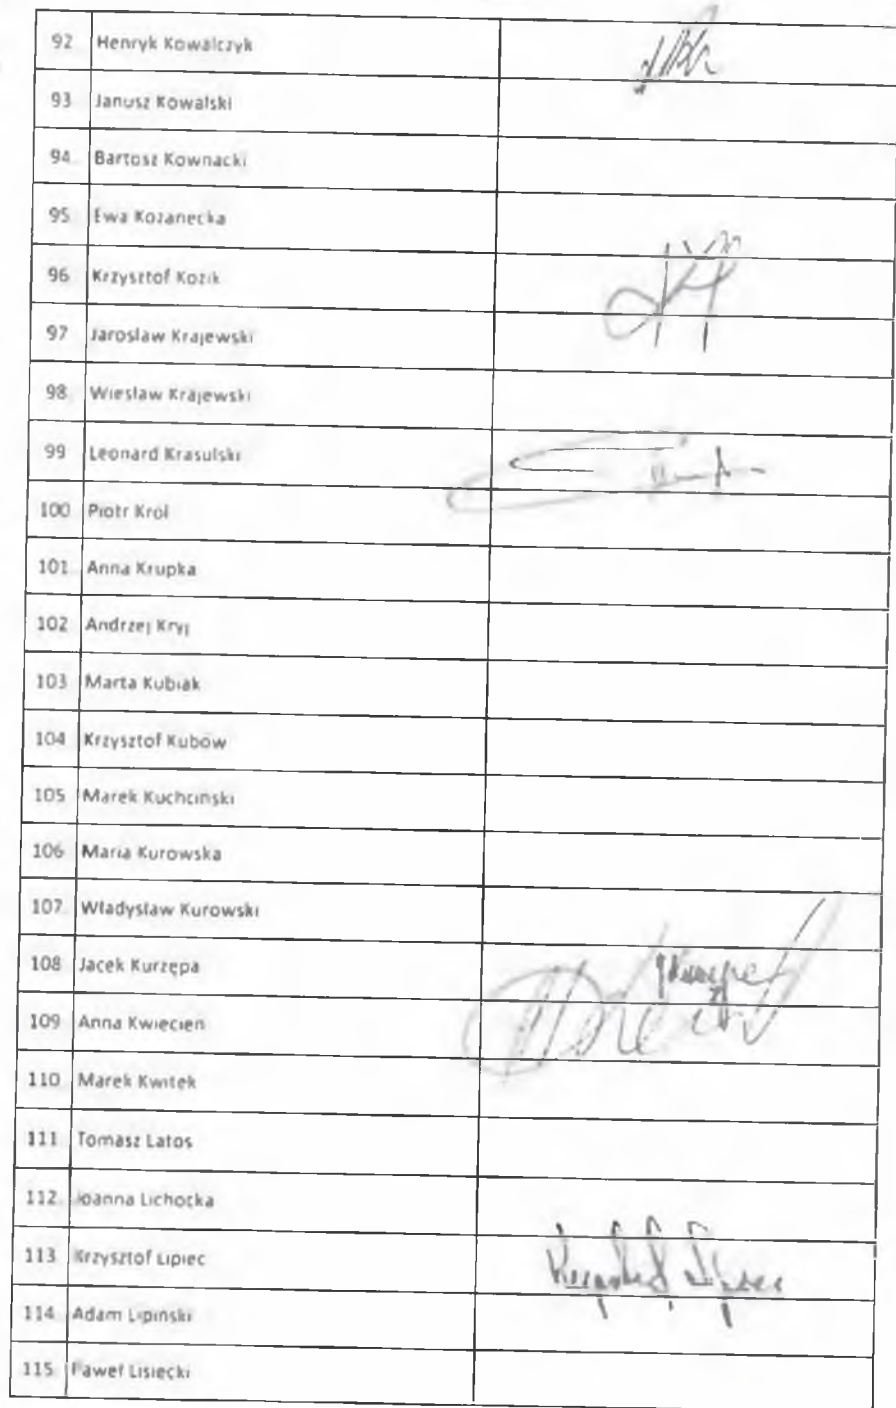 92. Henryk Kowalczyk
93 Janusz Kowalski
94. Bartosz Kownacki
95. Ewa Kozanecka
96 Krzysztof Kozik
97 Jarosław Krajewski
98. Wiesław Krajewski
99 Leonard Krasulski
100 Piotr Król
101. Anna Krupka
102 Andrzej Kryj
103 Marta Kubiak
104 Krzysztof Kubów
105 Marek Kuchciński
106 Maria Kurowska
107. Władysław Kurowski
108 Jacek Kurzępa
109 Anna Kwiecień
110 Marek Kwitek
111 Tomasz Latos
112. Joanna Lichocka
113 Krzysztof Lipiec
Krzysztof Lipiec
114. Adam Lipiński
115 Paweł Lisiecki